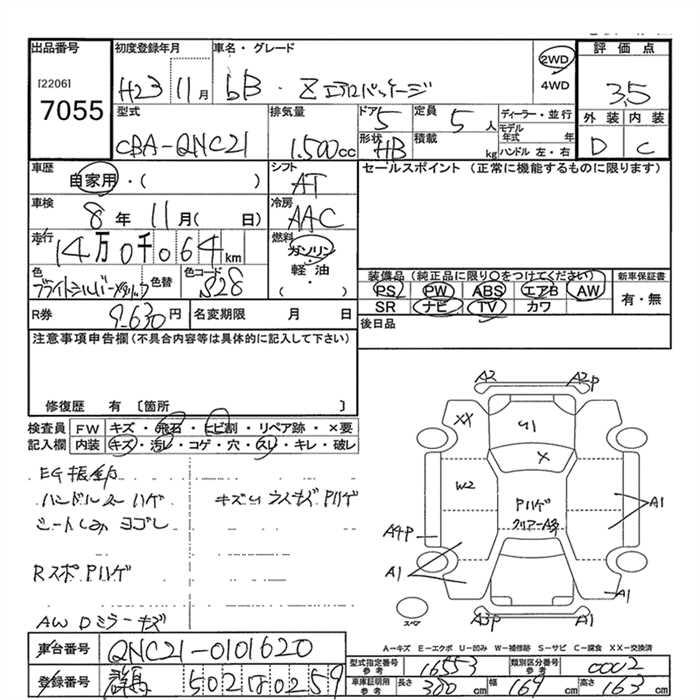 出品番号
[2206]
7055
初度登録年月
H23 11月
車名・グレード
bB・Zエアロパッケージ
2WD
4WD
評価点
3.5
外装 内装
D C
型式
CBA-QNC21
排気量
1.500cc
ドア 5
形状 HB
定員 5人
積載 kg
ディーラー・並行
モデル年式 年
ハンドル 左・右
車歴
自家用・( )
シフト
AT
セールスポイント (正常に機能するものに限ります)
車検
8年 11月( 日)
冷房
AAC
走行
14万0千064km
燃料
ガソリン
軽油
( )
色
ブライトシルバーメタリック
色替
色コード
S28
装備品 (純正品に限り○をつけてください)
PS PW ABS エアB AW
SR ナビ TV カワ
新車保証書
有・無
R券 9630円
名変期限 月 日
後日品
注意事項申告欄(不具合内容等は具体的に記入して下さい)
修復歴 有 〔箇所 〕
検査員記入欄
FW キズ・飛石・ヒビ割・リペア跡・×要
内装 キズ・汚レ・コゲ・穴・スレ・キレ・破レ
EG振動
ハンドルスレハゲ
キズUうスキズPハゲ
シートしみ ヨゴレ
RスポPハゲ
AW Dミラーキズ
A2
A2P
XX
U1
X
W2
Pハゲ
クリアーA3
A1
A4P
A1
A1
スペア
A3P
A1
A-キズ E-エクボ U-凹み W-補修跡 S-サビ C-腐食 XX-交換済
車台番号
QNC21-0101620
登録番号
群馬 502 た 0259
型式指定番号 参考
16553
類別区分番号 参考
0002
車庫証明用 参考
長さ 380cm 幅 169cm 高さ 163cm